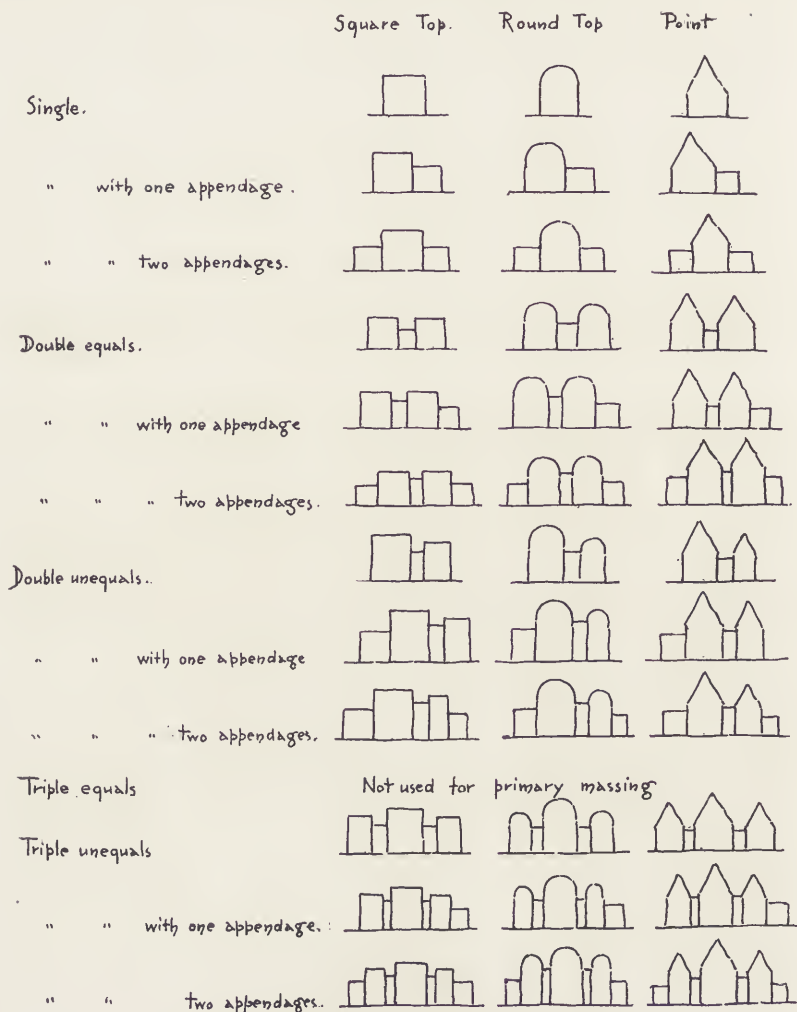 Square Top. Round Top Point
Single.
" with one appendage.
" " two appendages.
Double equals.
" " with one appendage
" " " two appendages.
Double unequals.
" " with one appendage
" " " two appendages.
Triple equals Not used for primary massing
Triple unequals
" " with one appendage.
" " two appendages.